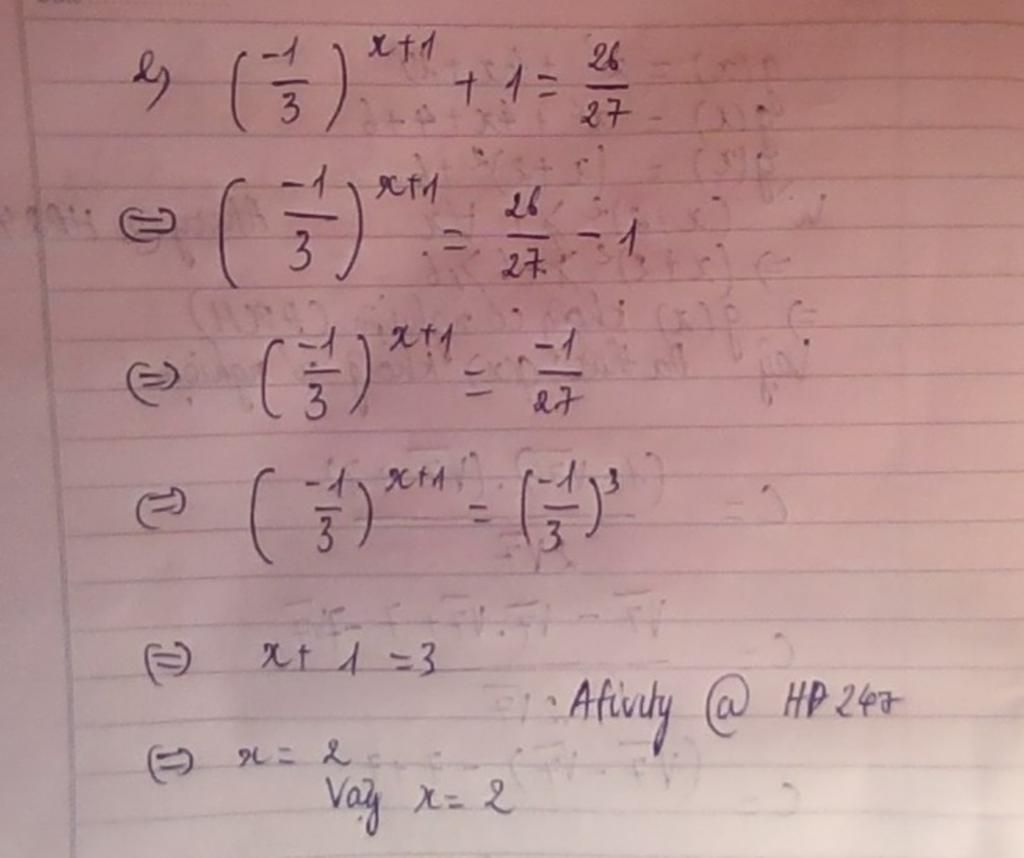 e) (-1/3)^(x+1) + 1 = 26/27
⇔ (-1/3)^(x+1) = 26/27 - 1
⇔ (-1/3)^(x+1) = -1/27
⇔ (-1/3)^(x+1) = (-1/3)^3
⇔ x + 1 = 3
Afivity @ HD 247
⇔ x = 2
Vậy x = 2